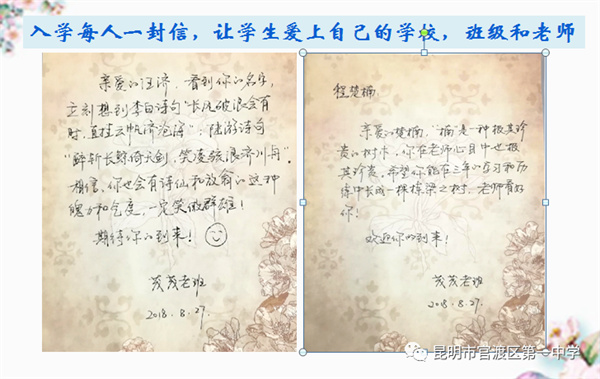 入学每人一封信，让学生爱上自己的学校，班级和老师
亲爱的汪济，看到你的名字，
立刻想到李白诗句"长风破浪会有
时，直挂云帆济沧海"；陆游诗句
"鲸斩长鲸倚天剑，笑凌骇浪济川舟"。
相信，你也会有诗仙和放翁的这种
魄力和气度，一定笑傲群雄！
期待你的到来！
茂茂老班
2018.8.27.
程楚楠
亲爱的楚楠，"楠"是一种极其珍
贵的树木，你在老师心目中也极
其珍贵，希望你能在三年的学习和历
练中长成一棵栋梁之树，老师看好
你！
欢迎你的到来！
茂茂老班
2018.8.27.
昆明市官渡区第一中学